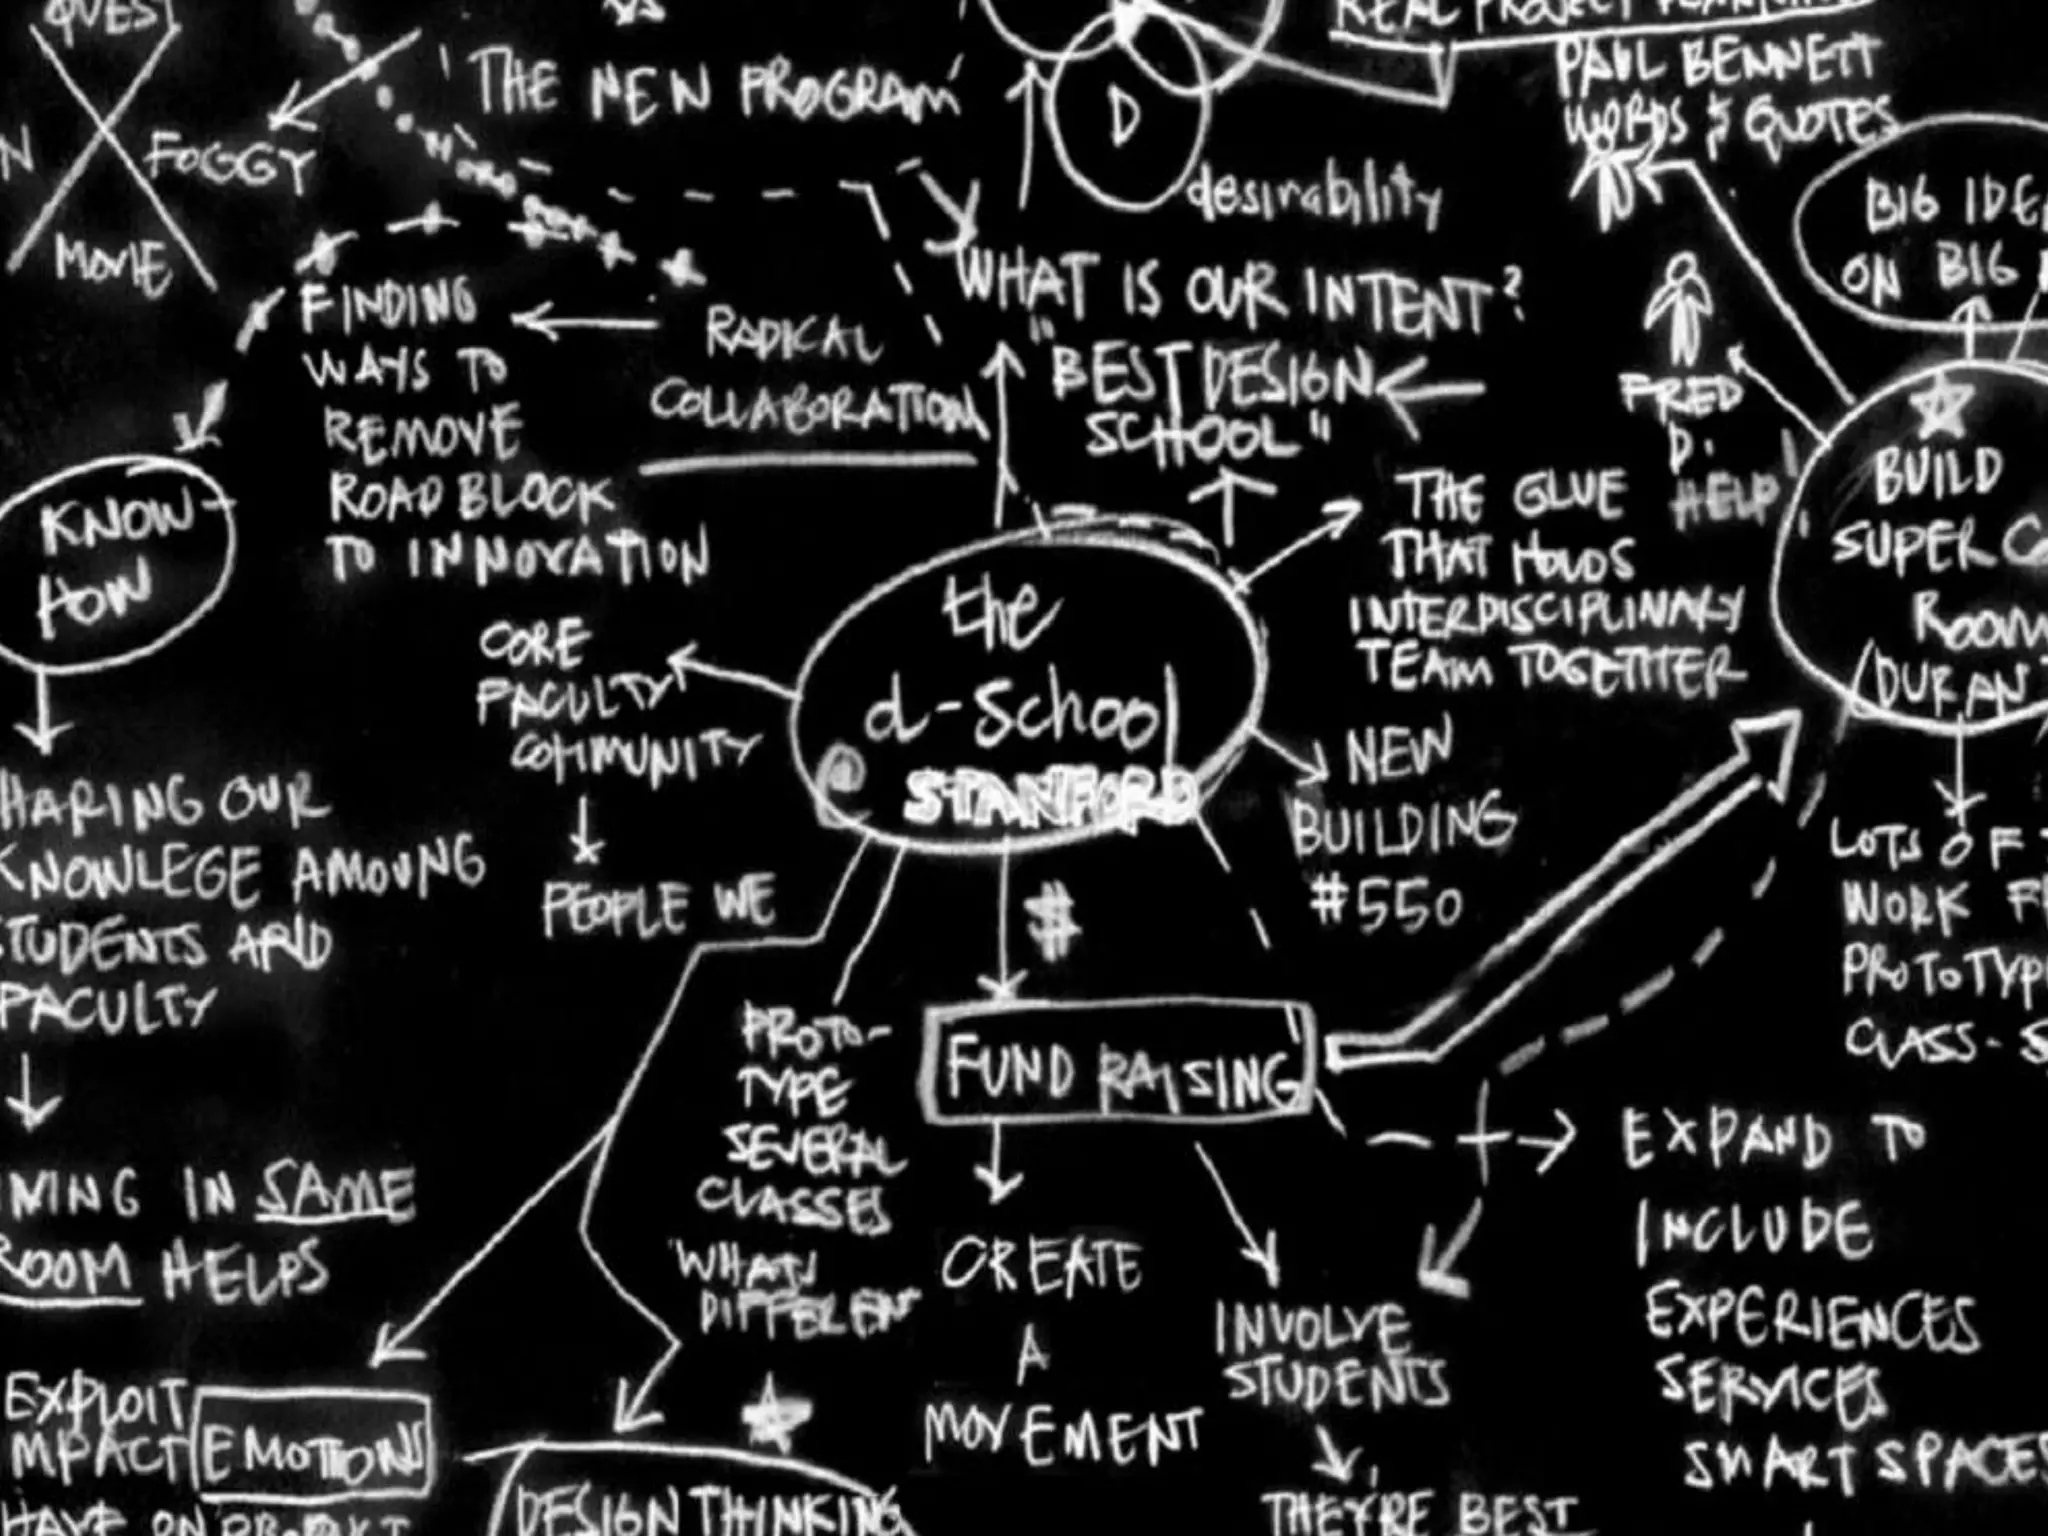 QUEST
VS
'THE NEW PROGRAM'
FOGGY
MOVIE
D
desirability
REAL PROJECT
PAUL BENNETT
WORDS & QUOTES
BIG IDE
ON BIG
FINDING
WAYS TO
REMOVE
ROAD BLOCK
TO INNOVATION
RADICAL
COLLABORATION
WHAT IS OUR INTENT?
"BEST DESIGN
SCHOOL"
FRED
D.
HELP
KNOW-
HOW
THE GLUE
THAT HOLDS
INTERDISCIPLINARY
TEAM TOGETHER
BUILD
SUPER CO
ROOM
(DURAN
CORE
FACULTY
COMMUNITY
PEOPLE WE
the
d-School
@ STANFORD
NEW
BUILDING
#550
HARING OUR
KNOWLEGE AMOUNG
STUDENTS AND
FACULTY
$
FUND RAISING
LOTS OF
WORK
PROTOTYP
CLASS-S
PROTO-
TYPE
SEVERAL
CLASSES
WHATS
DIFFEREN
MING IN SAME
ROOM HELPS
CREATE
A
MOVEMENT
INVOLVE
STUDENTS
THEY'RE BEST
EXPAND TO
INCLUDE
EXPERIENCES
SERVICES
SMART SPACES
EXPLOIT
MPACT EMOTIONS
HAVE ON PRODUCT
DESIGN THINKING